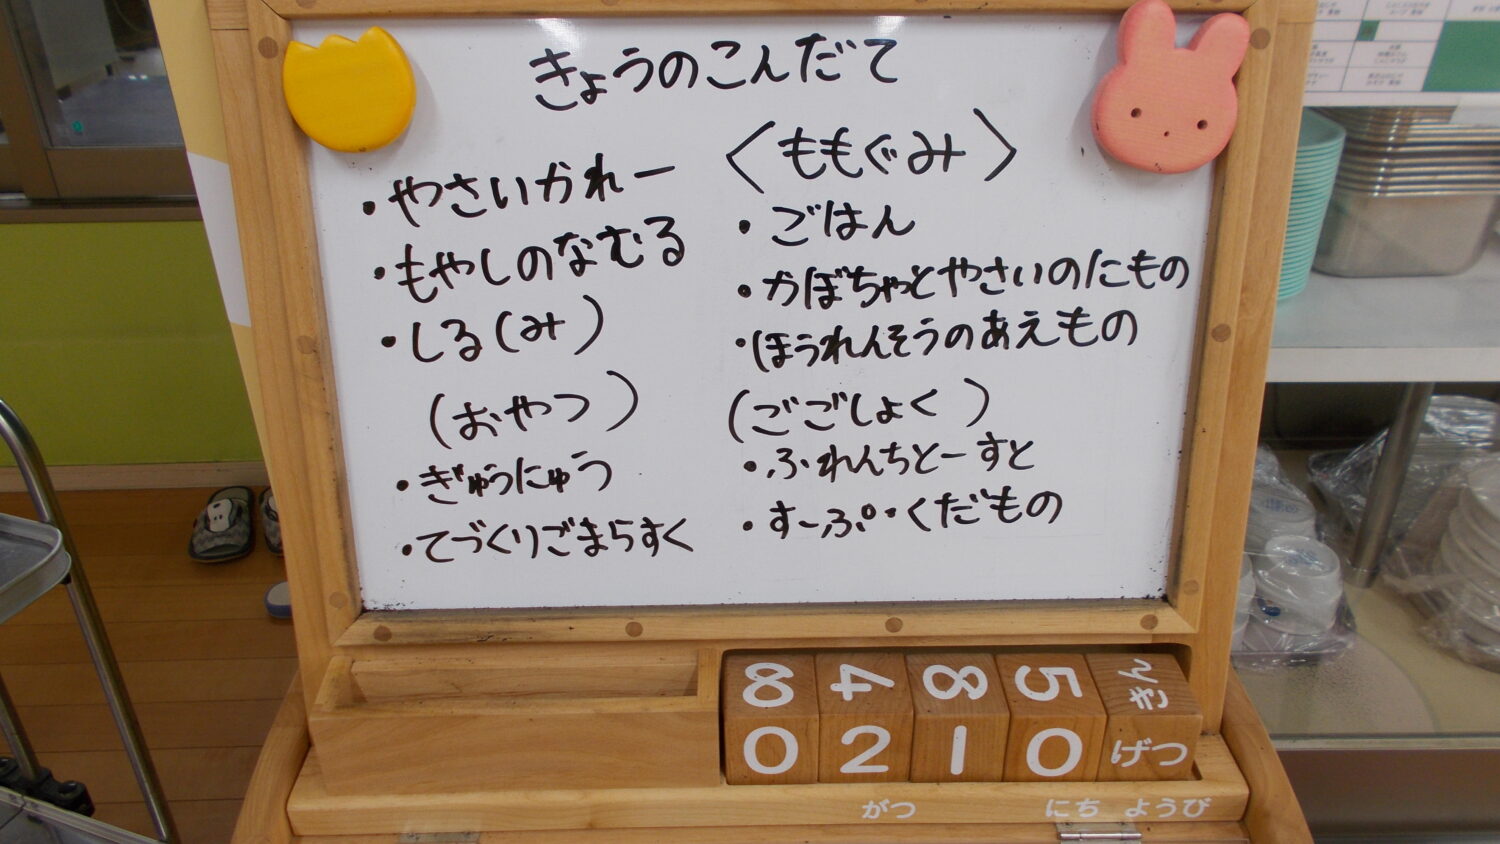 きょうのこんだて
・やさいかれー
・もやしのなむる
・しる(み)
(おやつ)
・ぎゅうにゅう
・てづくりごまらすく
〈ももぐみ〉
・ごはん
・かぼちゃとやさいのにもの
・ほうれんそうのあえもの
(ごごしょく)
・ふれんちとーすと
・すーぷ・くだもの
8 4 8 5 きん
0 2 1 0 げつ
がつ にち ようび